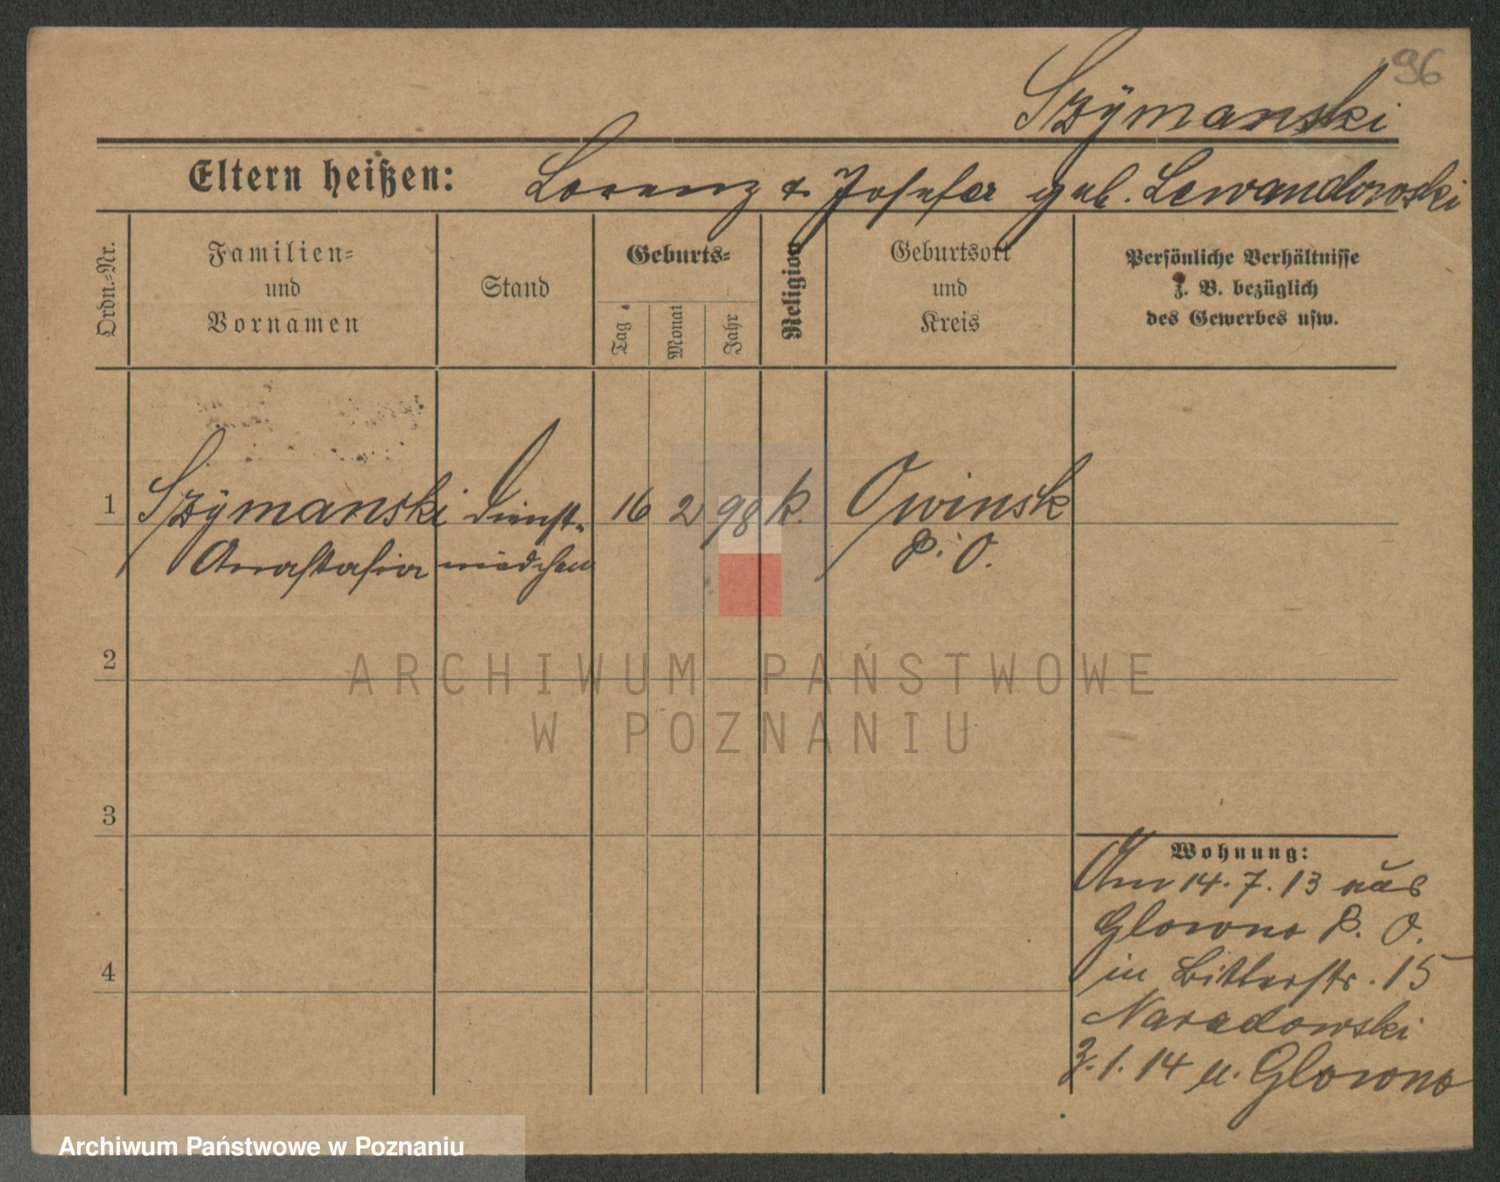 96
Szÿmanski
Eltern heißen: Lorenz & Josefa geb. Lewandowski
Ordn.-Nr.
Familien-
und
Vornamen
Stand
Geburts-
Tag
Monat
Jahr
Religion
Geburtsort
und
Kreis
Persönliche Verhältnisse
z. B. bezüglich
des Gewerbes usw.
1 Szÿmanski Dienst- 16 2 98 k. Owinsk
Anastasia mädchen P. O.
2
ARCHIWUM PAŃSTWOWE
W POZNANIU
3
Wohnung:
Am 14.7.13 aus
Glowno P. O.
in Bitterstr. 15
4
Naradowski
3.1.14 n. Glowno
Archiwum Państwowe w Poznaniu